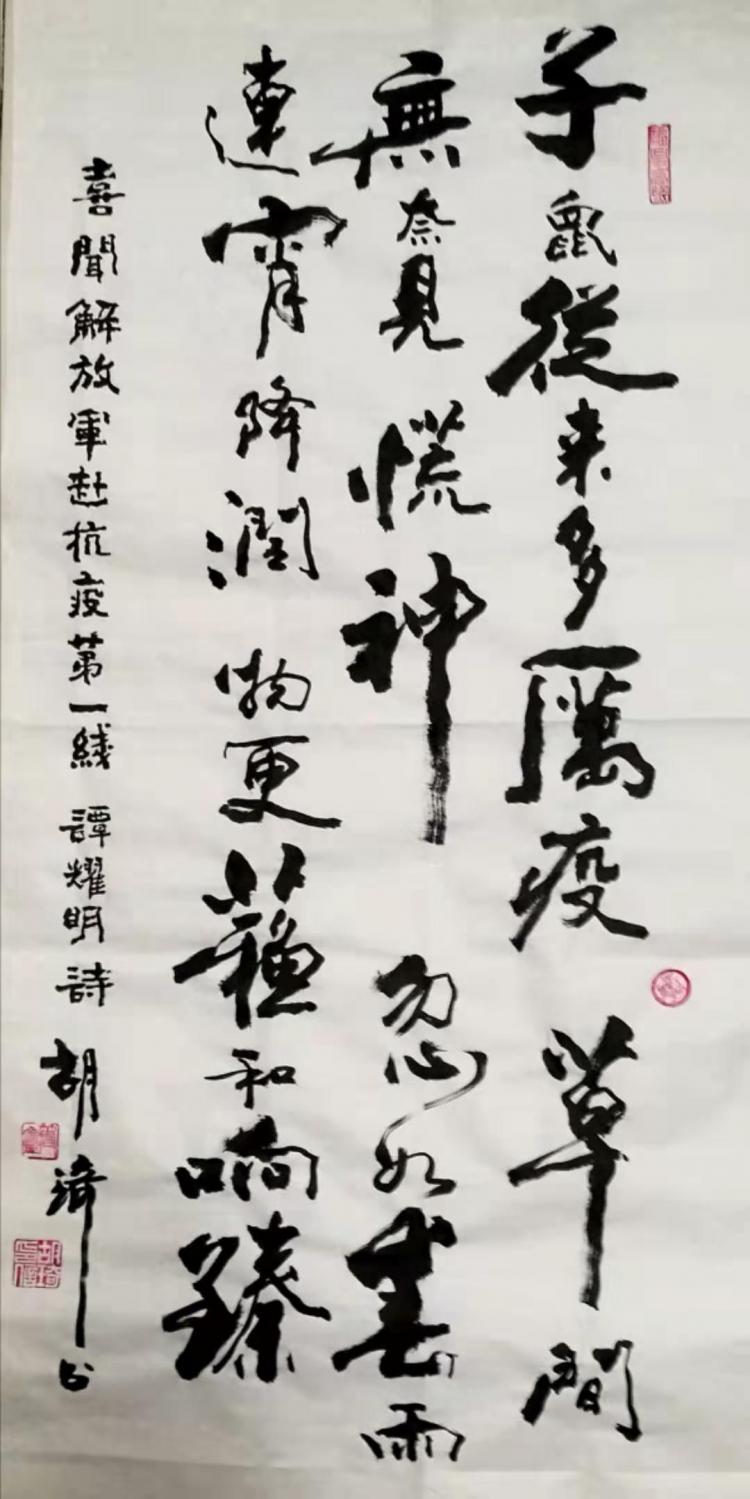 子鼠從来多厲疫草間
無奈見慌神忽如春雨
連宵降潤物更蘓和响臻
喜聞解放軍赴抗疫第一綫 譚耀明詩 胡